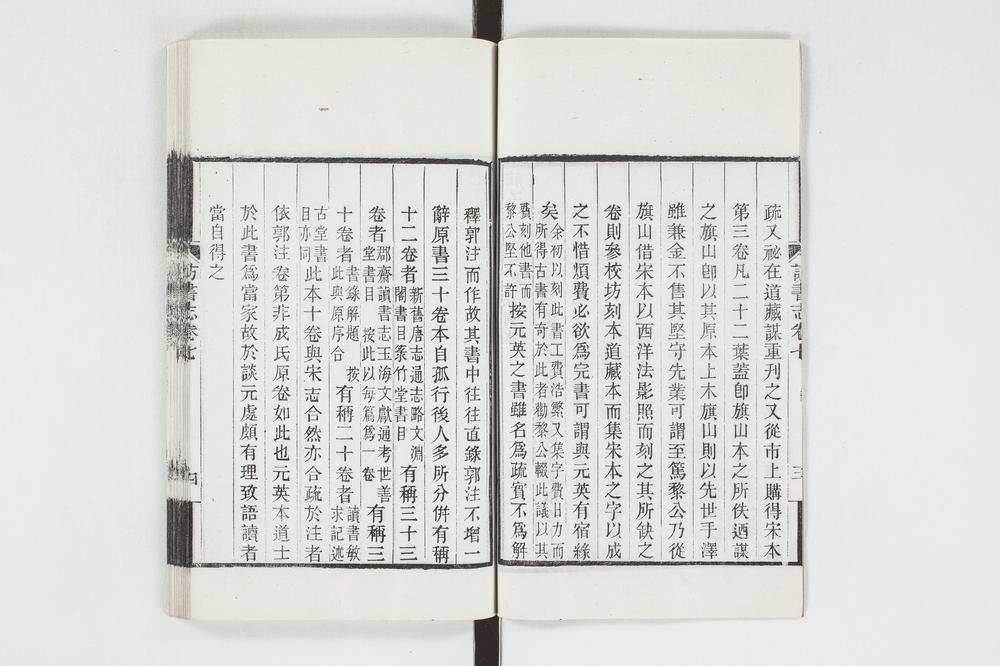 疏又祕在道藏謀重刊之又從市上購得宋本
第三卷凡二十二葉蓋卽旗山本之所佚迺謀
之旗山卽以其原本上木旗山則以先世手澤
雖兼金不售其堅守先業可謂至篤黎公乃從
旗山借宋本以西洋法影照而刻之其所缺之
卷則參校坊刻本道藏本而集宋本之字以成
之不惜煩費必欲爲完書可謂與元英有宿緣
矣余初以刻此書工費浩繁又集字費日力而
所得古書有奇於此者勸黎公輟此議以其
費刻他書而
黎公堅不許按元英之書雖名爲疏實不爲解
釋郭注而作故其書中往往直錄郭注不增一
辭原書三十卷本自孤行後人多所分倂有稱
十二卷者新舊唐志通志略文淵
閣書目菉竹堂書目有稱三十三
卷者郡齋讀書志玉海文獻通考世善
堂書目 按此以每篇爲一卷有稱三
十卷者書錄解題 按
此與原序合有稱二十卷者讀書敏
求記述
古堂書
目亦同此本十卷與宋志合然亦合疏於注者
依郭注卷第非成氏原卷如此也元英本道士
於此書爲當家故於談元處頗有理致語讀者
當自得之
訪書志卷七
三
訪書志卷七
四